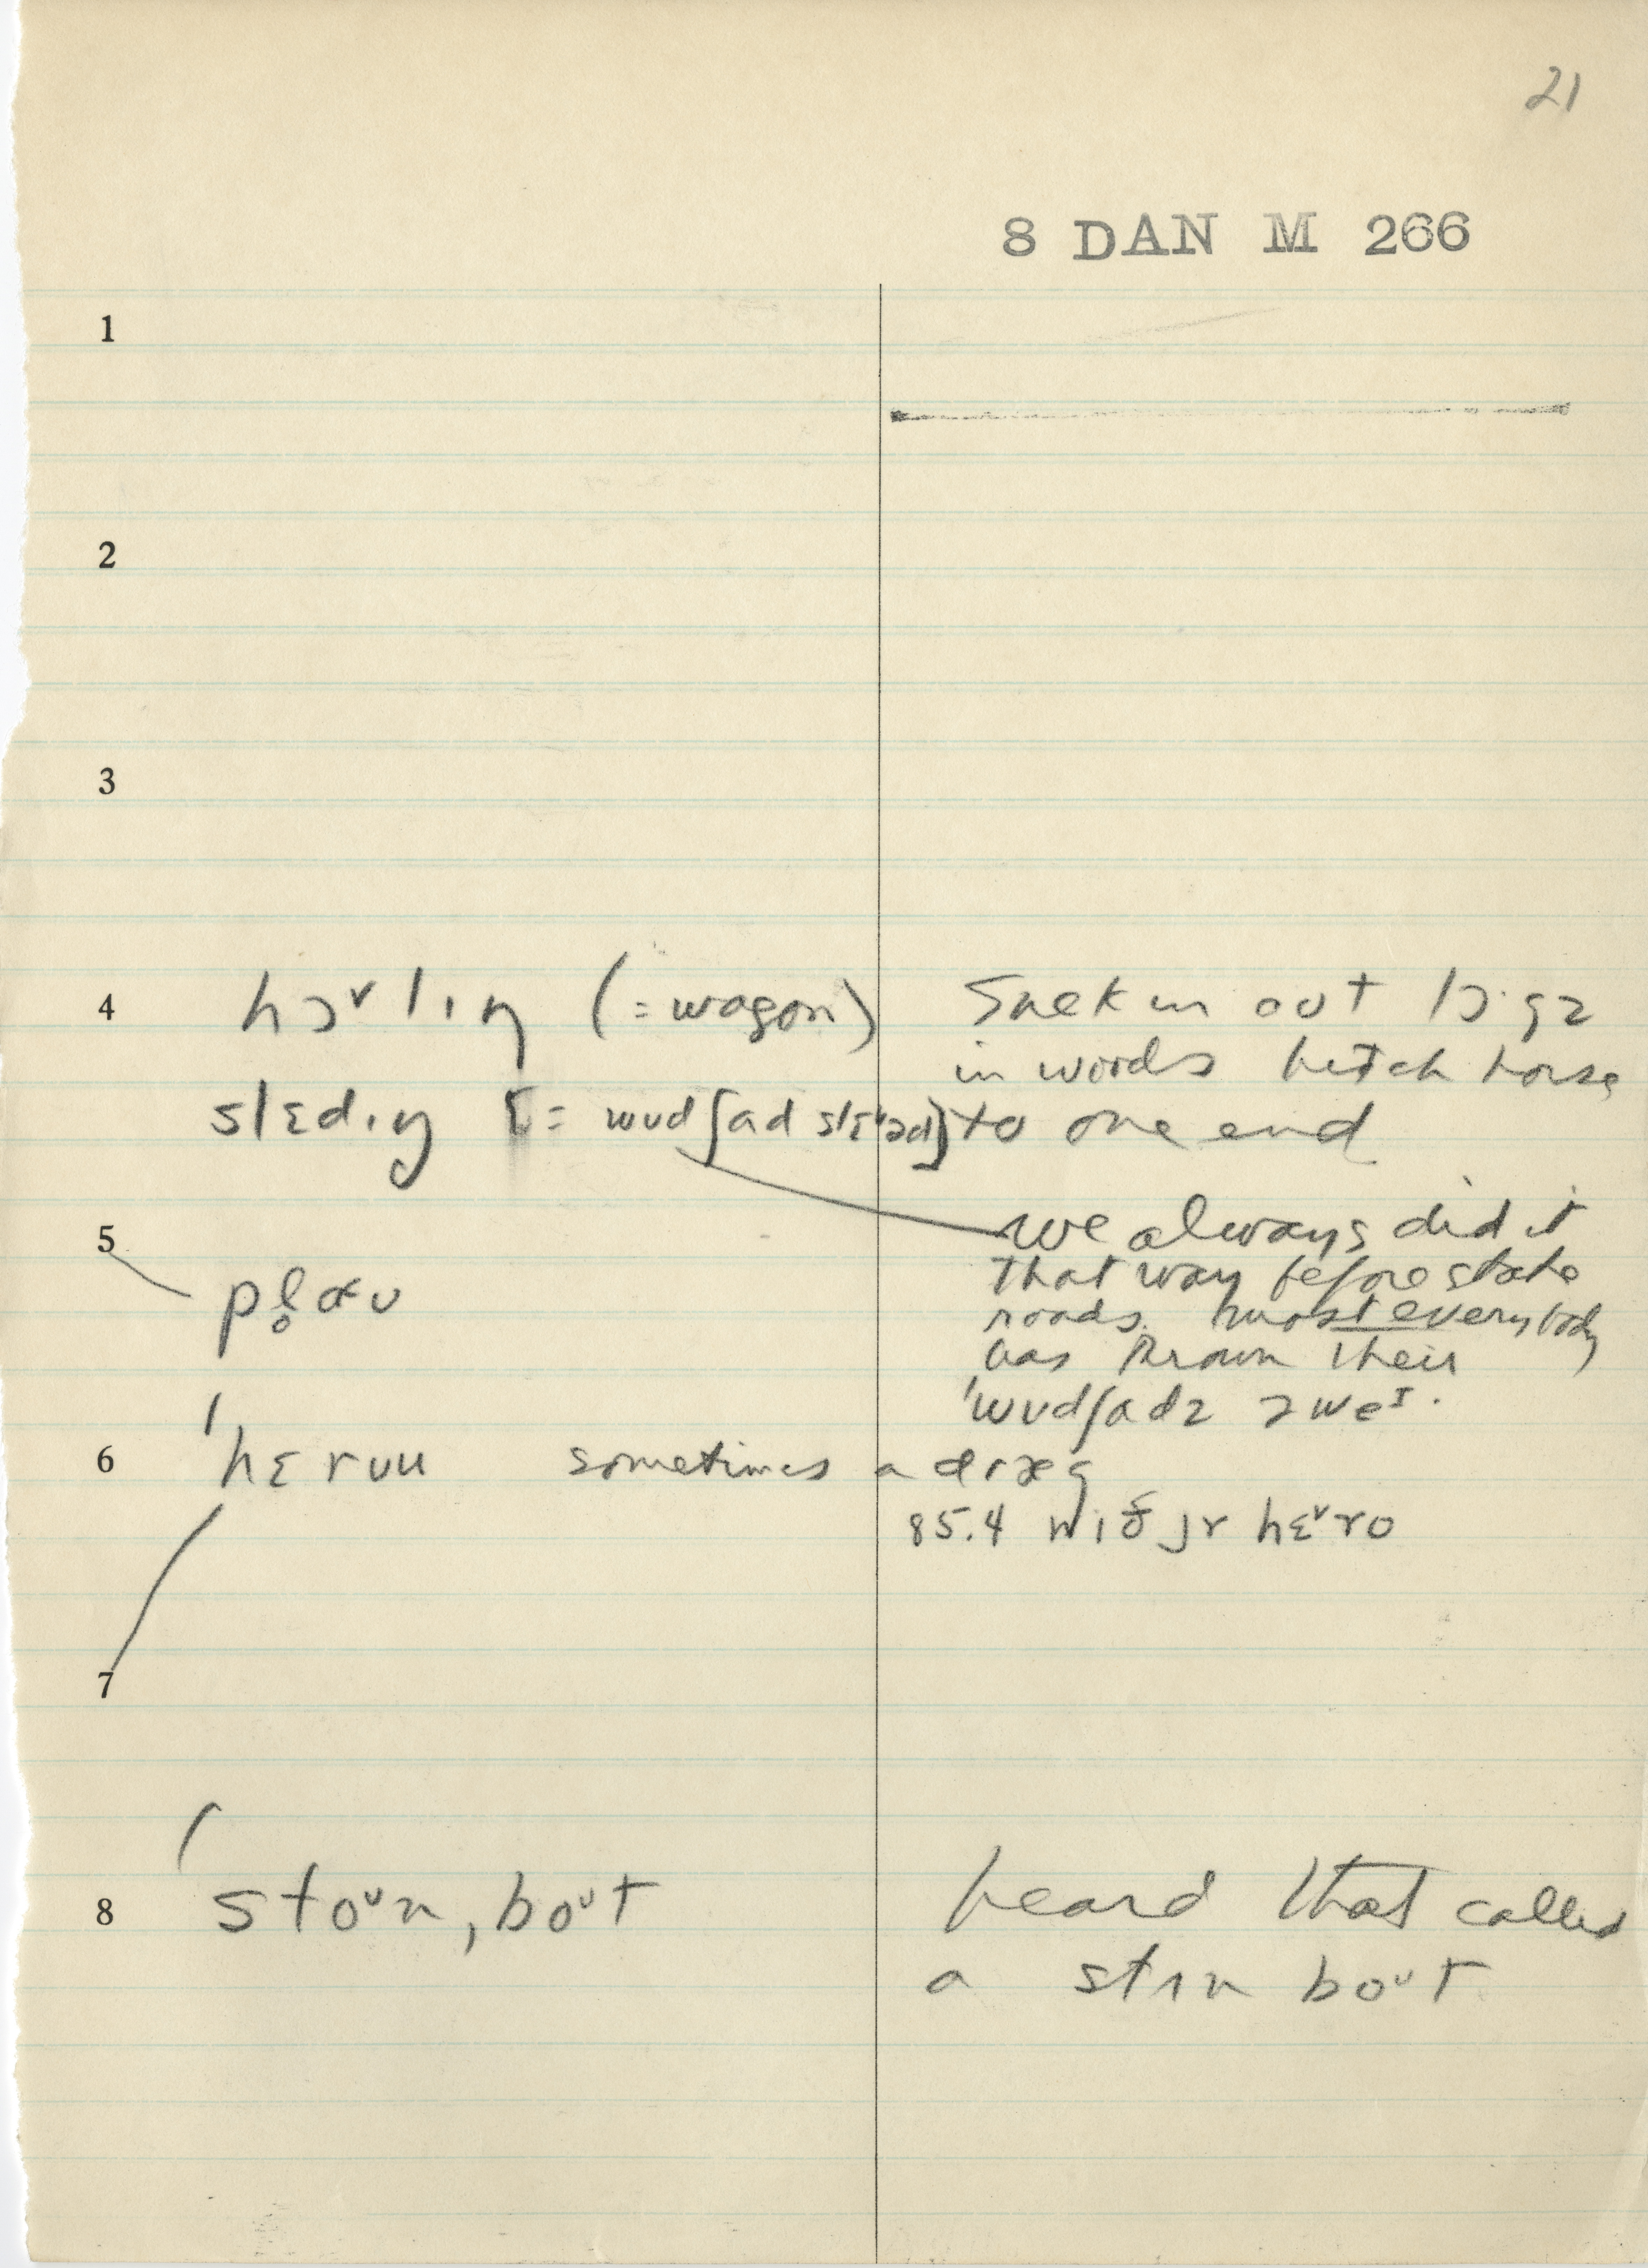 21
8 DAN M 266
1
2
3
4 hɔᵛlɪŋ (=wagon) out lɔ·gz
in woods hitch horse
slɛdɪŋ [= wudʃad slɛᵛəd] to one end
we always did it
5 that way before state
pl̥ɑu roads. most everybody
has thrown their
'wudʃadz əweɪ.
6 'hɛruu sometimes a dræg
85.4 wɪð jr hɛᵛro
7
8 'stoᵘn,boᵘt heard that called
a stɪn boᵘt